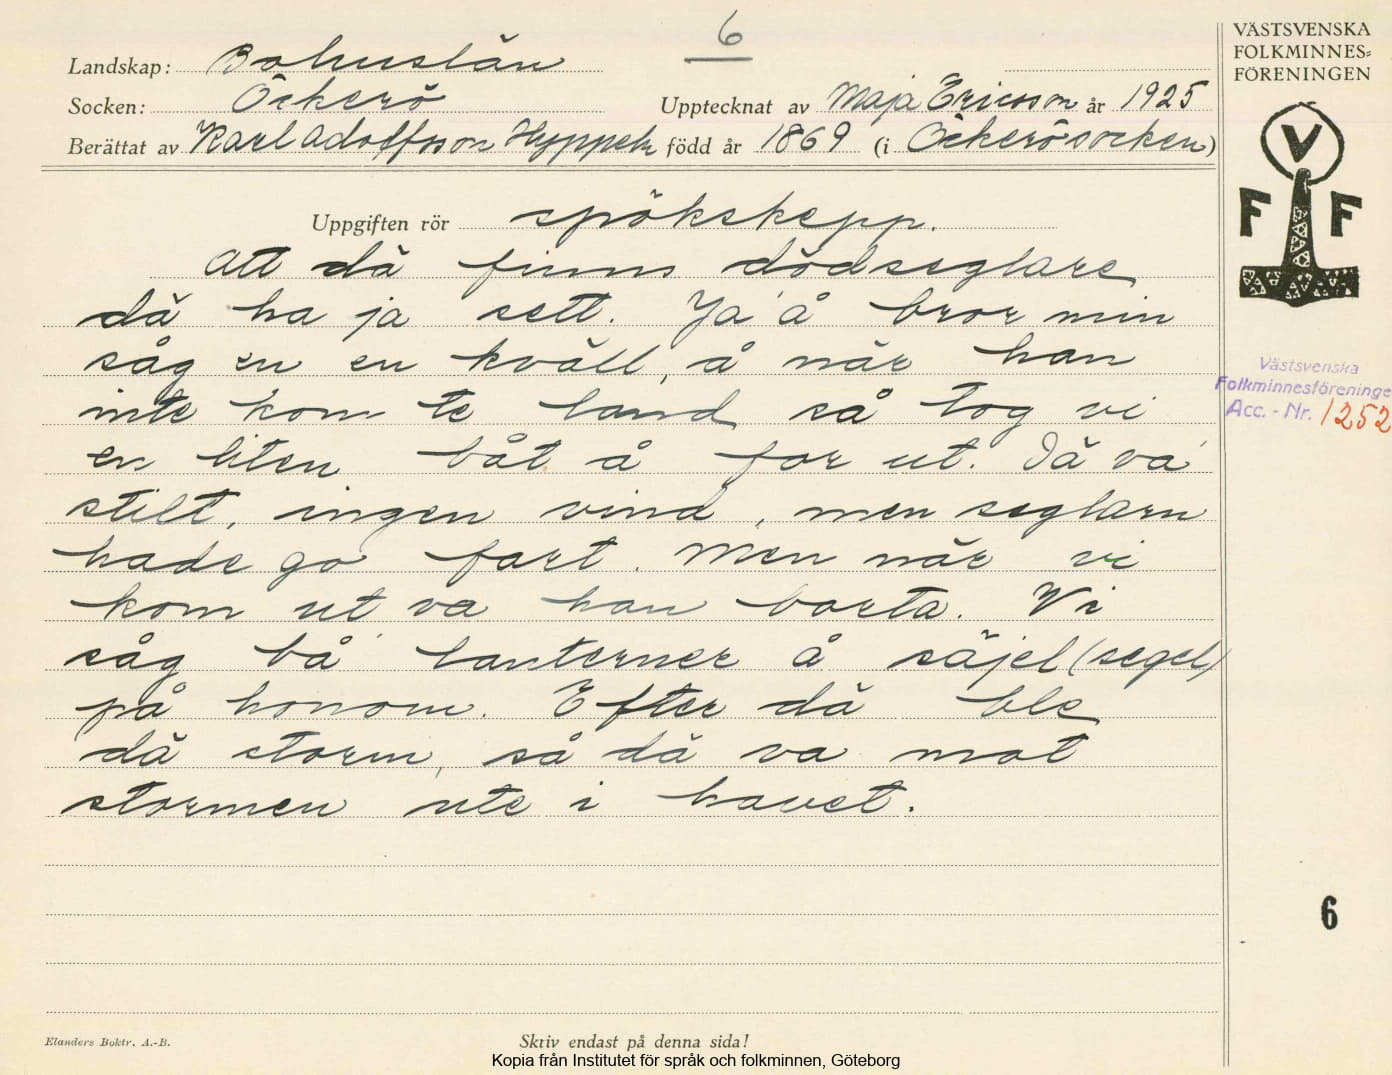 6
Landskap: Bohuslän
Socken: Öckerö
Upptecknat av Maja Ericsson år 1925
Berättat av Karl Adolfsson Hyppeln född år 1869 (i Öckerö socken)
VÄSTSVENSKA
FOLKMINNES=
FÖRENINGEN
V
F F
Uppgiften rör spökskepp.
Att dä finns dödseglare
dä ha ja sett. Ja å bror min
såg en en kväll, å när han
inte kom te land så tog vi
en liten båt å for ut. Dä va
stilt, ingen vind, men seglarn
hade go fart. Men när vi
kom ut va han borta. Vi
såg bå lanterner å säjel (segel)
på honom. Efter dä ble
dä storm, så dä va mot
stormen ute i havet.
Västsvenska
Folkminnesföreninge
Acc. - Nr. 1252
6
Elanders Boktr. A.-B.
Skriv endast på denna sida!
Kopia från Institutet för språk och folkminnen, Göteborg